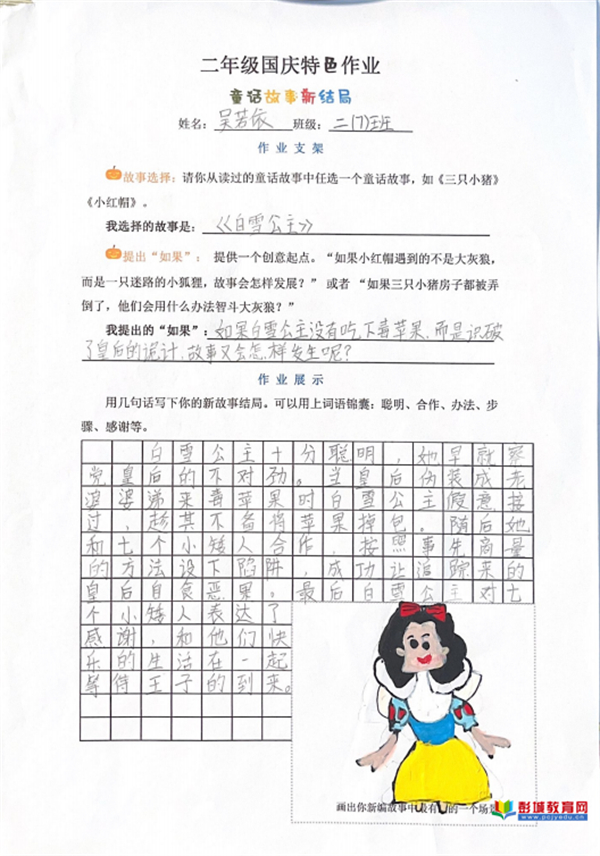 二年级国庆特色作业
童话故事新结局
姓名：吴芳依 班级：二(7)班
作业支架
故事选择：请你从读过的童话故事中任选一个童话故事，如《三只小猪》
《小红帽》。
我选择的故事是：《白雪公主》
提出“如果”：提供一个创意起点。“如果小红帽遇到的不是大灰狼，
而是一只迷路的小狐狸，故事会怎样发展？” 或者 “如果三只小猪房子都被弄
倒了，他们会用什么办法智斗大灰狼？”
我提出的“如果”：如果白雪公主没有吃下毒苹果，而是识破
了皇后的诡计，故事又会怎样发生呢？
作业展示
用几句话写下你的新故事结局。可以用上词语锦囊：聪明、合作、办法、步
骤、感谢等。
白雪公主十分聪明，她早就察
觉皇后的不对劲。当皇后伪装成老
婆婆递来毒苹果时白雪公主假意接
过，趁其不备将苹果掉包。随后她
和七个小矮人合作，按照事先商量
的方法设下陷阱，成功让追踪来的
皇后自食恶果。最后白雪公主对七
个小矮人表达了
感谢，和他们快
乐的生活在一起
等待王子的到来。
画出你新编故事中最有 的一个场景
彭城教育网
www.pcjyedu.cn